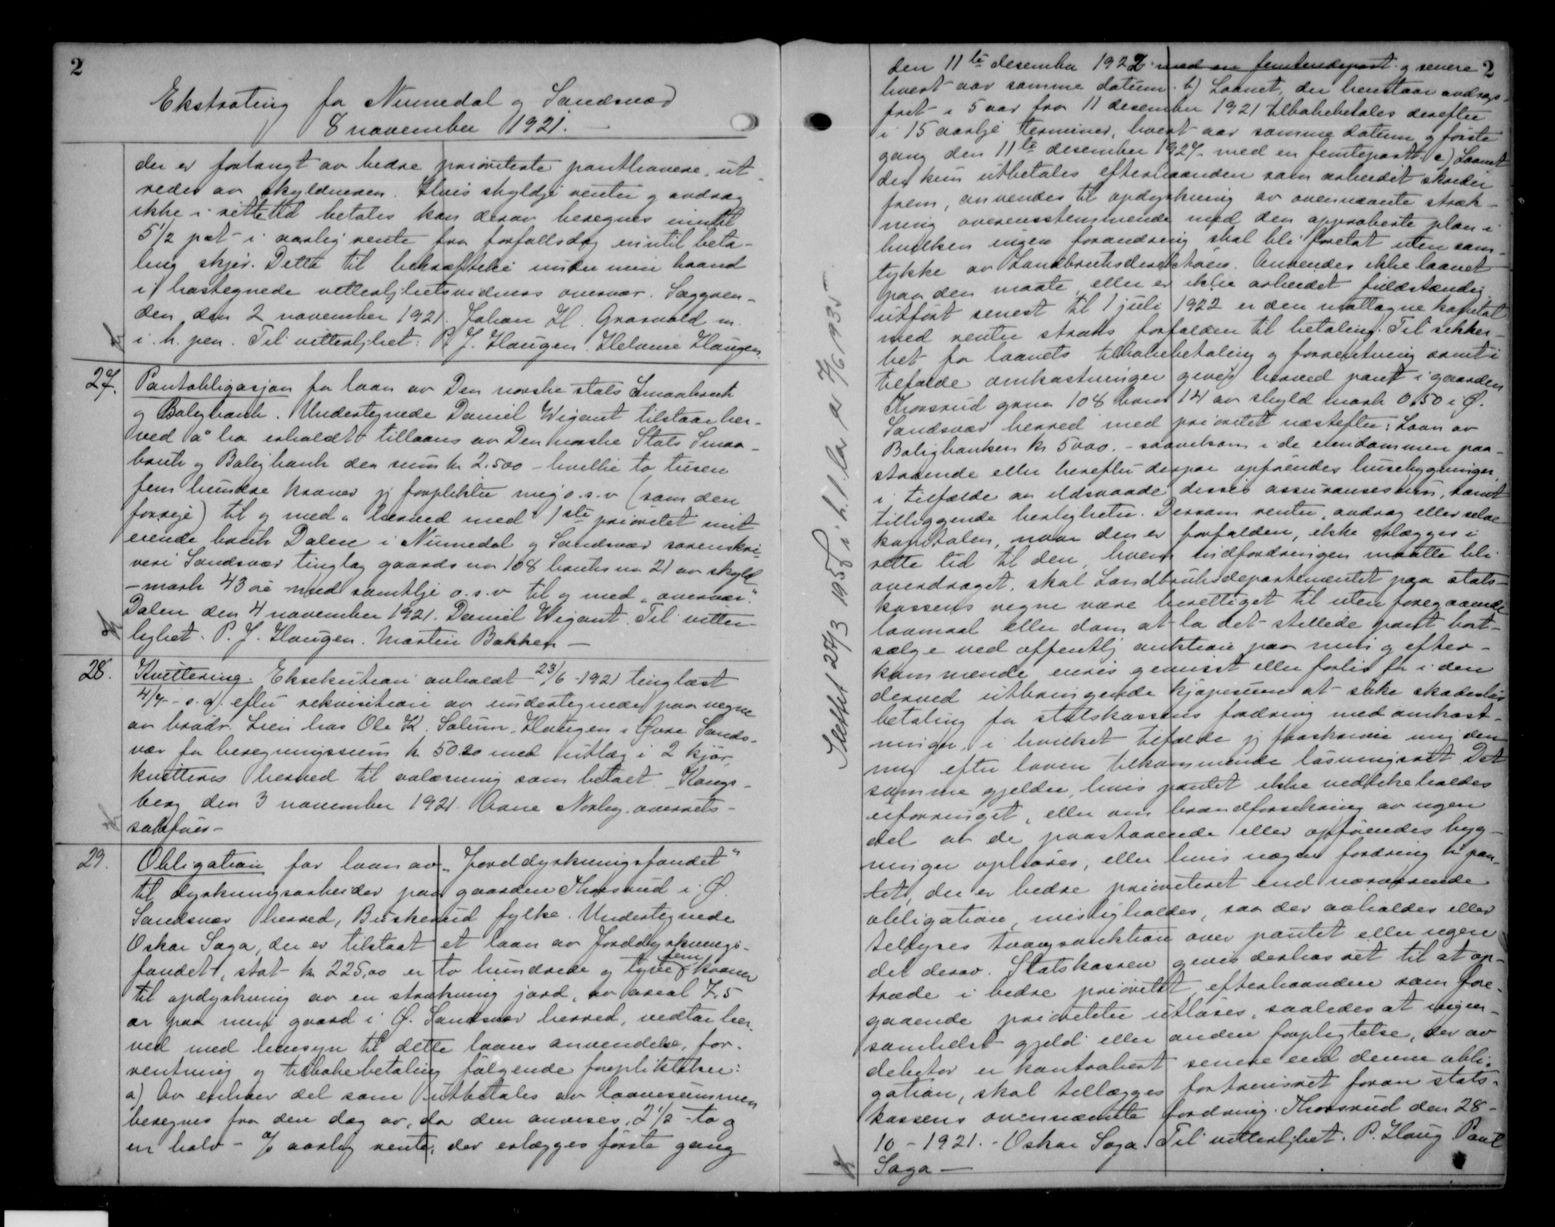 2
Ekstrating for Numedal og Sandsvær
8 november 1921.
der er forlangt av bedre prioriterte panthavere, ut-
redes av skyldneren. Hvis skyldige renter og avdrag
ikke i rette tid betales kan derav beregnes inntil
5½ pct i aarlig rente fra forfallsdag inntil beta-
ling skjer. Dette til bekræftelse under min haand
i hostegnede vitterlighetsvidners overvær. Saggren-
den den 2 november 1921. Johan H. Grosvold m.
i. h. pen. Til vitterlighet: P. J. Haugen. Helene Haugen.
27. Pantobligasjon for laan av Den norske stats Smaabruk
og Boligbank. Undertegnede Daniel Wigant tilstaar her-
ved å ha erholdt tillaans av Den norske Stats Smaa-
bruk og Boligbank den sum kr 2.500 - hvilke to tusen
fem hundre kroner jeg forplikter mig o.s.v. (som den
forrige) til og med „herved med" 1ste prioritet mit
eiende bruk Dalen i Numedal og Sandsvær sorenskri-
veri Sandsvær tinglag gaards no 108 bruks no 21 av skyld
-mark 43 øre med samtlige o.s.v til og med „overvær".
Dalen den 4 november 1921. Daniel Wigant. Til vitter-
lighet. P. J. Haugen. Martin Bakken -
28. Kvittering. Eksekution avholdt 23/6 -1921 tinglæst
4/7 - s. a. efter rekvisition av undertegnede paa vegne
av brødr. Lien hos Ole K. Solum, Haugen i Øvre Sands-
vær for beregningssum kr. 50.20 med utlæg i 2 kjør,
kvitteres herved til avlæsning som betalt. Kongs-
berg den 3 november 1921. Arne Norby, overrets-
sakfører -
29. Obligation for laan av „Jorddyrkningsfondet"
til dyrkningsarbeider paa gaarden Thorsrud i Ø.
Sandsvær herred, Buskerud fylke. Undertegnede
Oskar Saga, der er tilstaat et laan av Jorddyrknings-
fondet, stort kr. 225,00 er to hundrede og tyve fem kroner
til opdyrkning av en strækning jord, av areal 7.5
ar paa min gaard i Ø. Sandsvær herred, vedtar her-
ved med hensyn til dette laans anvendelse, for-
rentning og tilbakebetaling følgende forpliktelser:
a) Av enhver del som utbetales av laanesummen
beregnes fra den dag av, da den anvises, 2½ - to og
en halv - % aarlig rente, der erlægges første gang
2
den 11te desember 1922 med en femtendepart og senere
hvert aar samme datum. b) Laanet, der henstaar avdrags-
frit i 5 aar fra 11 desember 1921 tilbakebetales derefter
i 15 aarlige terminer, hvert aar samme datum og første
gang den 11te desember 1927 med en femtepart. c) Laanet
der kun utbetales efterhaanden som arbeidet skrider
frem, anvendes til opdyrkning av ovennævnte stræk-
ning overensstemmende med den approberte plan i
hvilken ingen forandring skal bli foretat uten sam-
tykke av Landbruksdirektøren. Anvendes ikke laanet
paa den maate, eller er ikke arbeidet fuldstændig
utført senest til 1 juli 1922 er den mottagne kapital
med renter straks forfalden til betaling. Til sikker-
het for laanets tilbakebetaling og forrentning samt i
tilfælde omkostninger gives herved pant i gaarden
Thorsrud gnr. 108 bnr 14 av skyld mark 0.50 i Ø.
Sandsvær herred med prioritet næstefter: Laan av
Boligbanken kr 5000. - saavelsom i de eiendommen paa-
staaende eller herefter derpaa opførendes husebygninger
i tilfælde av ildsvaade disses assuransesum, samt
tilliggende herligheter. Dersom renter, avdrag eller selve
kapitalen, naar den er forfalden, ikke erlægges i
rette tid til den, hvem indfordringen maatte bli
overdraget, skal Landbruksdepartementet paa stats-
kassens vegne være berettiget til uten foregaaende
lovmaal eller dom at la det stillede pant bort-
sælge ved offentlig auktion paa min og efter-
kommende eiers gevinst eller forlis for i den
derved utbringende kjøpesum at søke skadesløs
betaling for statskassens fordring med omkost-
ninger, i hvilket tilfælde jeg fraskriver mig den
mig efter loven tilkommende løsningsret. Det
samme gjelder, hvis pantet ikke vedlikeholdes
uforringet, eller om brandforsikring av nogen
del av de paastaaende eller opførendes byg-
ninger ophører, eller hvis nogen fordring i pan-
tet, der er bedre prioritert end nærværende
obligation, misligholdes, saa der avholdes eller
tellyses tvangsauktion over pantet eller nogen
del derav. Statskassen gives derhos ret til at op-
træde i bedre prioritet, efterhaanden som fore-
gaaende prioriteter utløses, saaledes at ingen-
somhelst gjeld eller anden forpligtelse, der av
debitor er kontrahert senere end denne obli-
gation, skal tillægges fortrinsret foran stats-
kassens ovennævnte fordring. Thorsrud den 28-
10 - 1921. - Oskar Saga. Til vitterlighet. P. Haug Paul
Saga -
Slettet 27/3 1958 i. h. t. lov av 7/6 1935